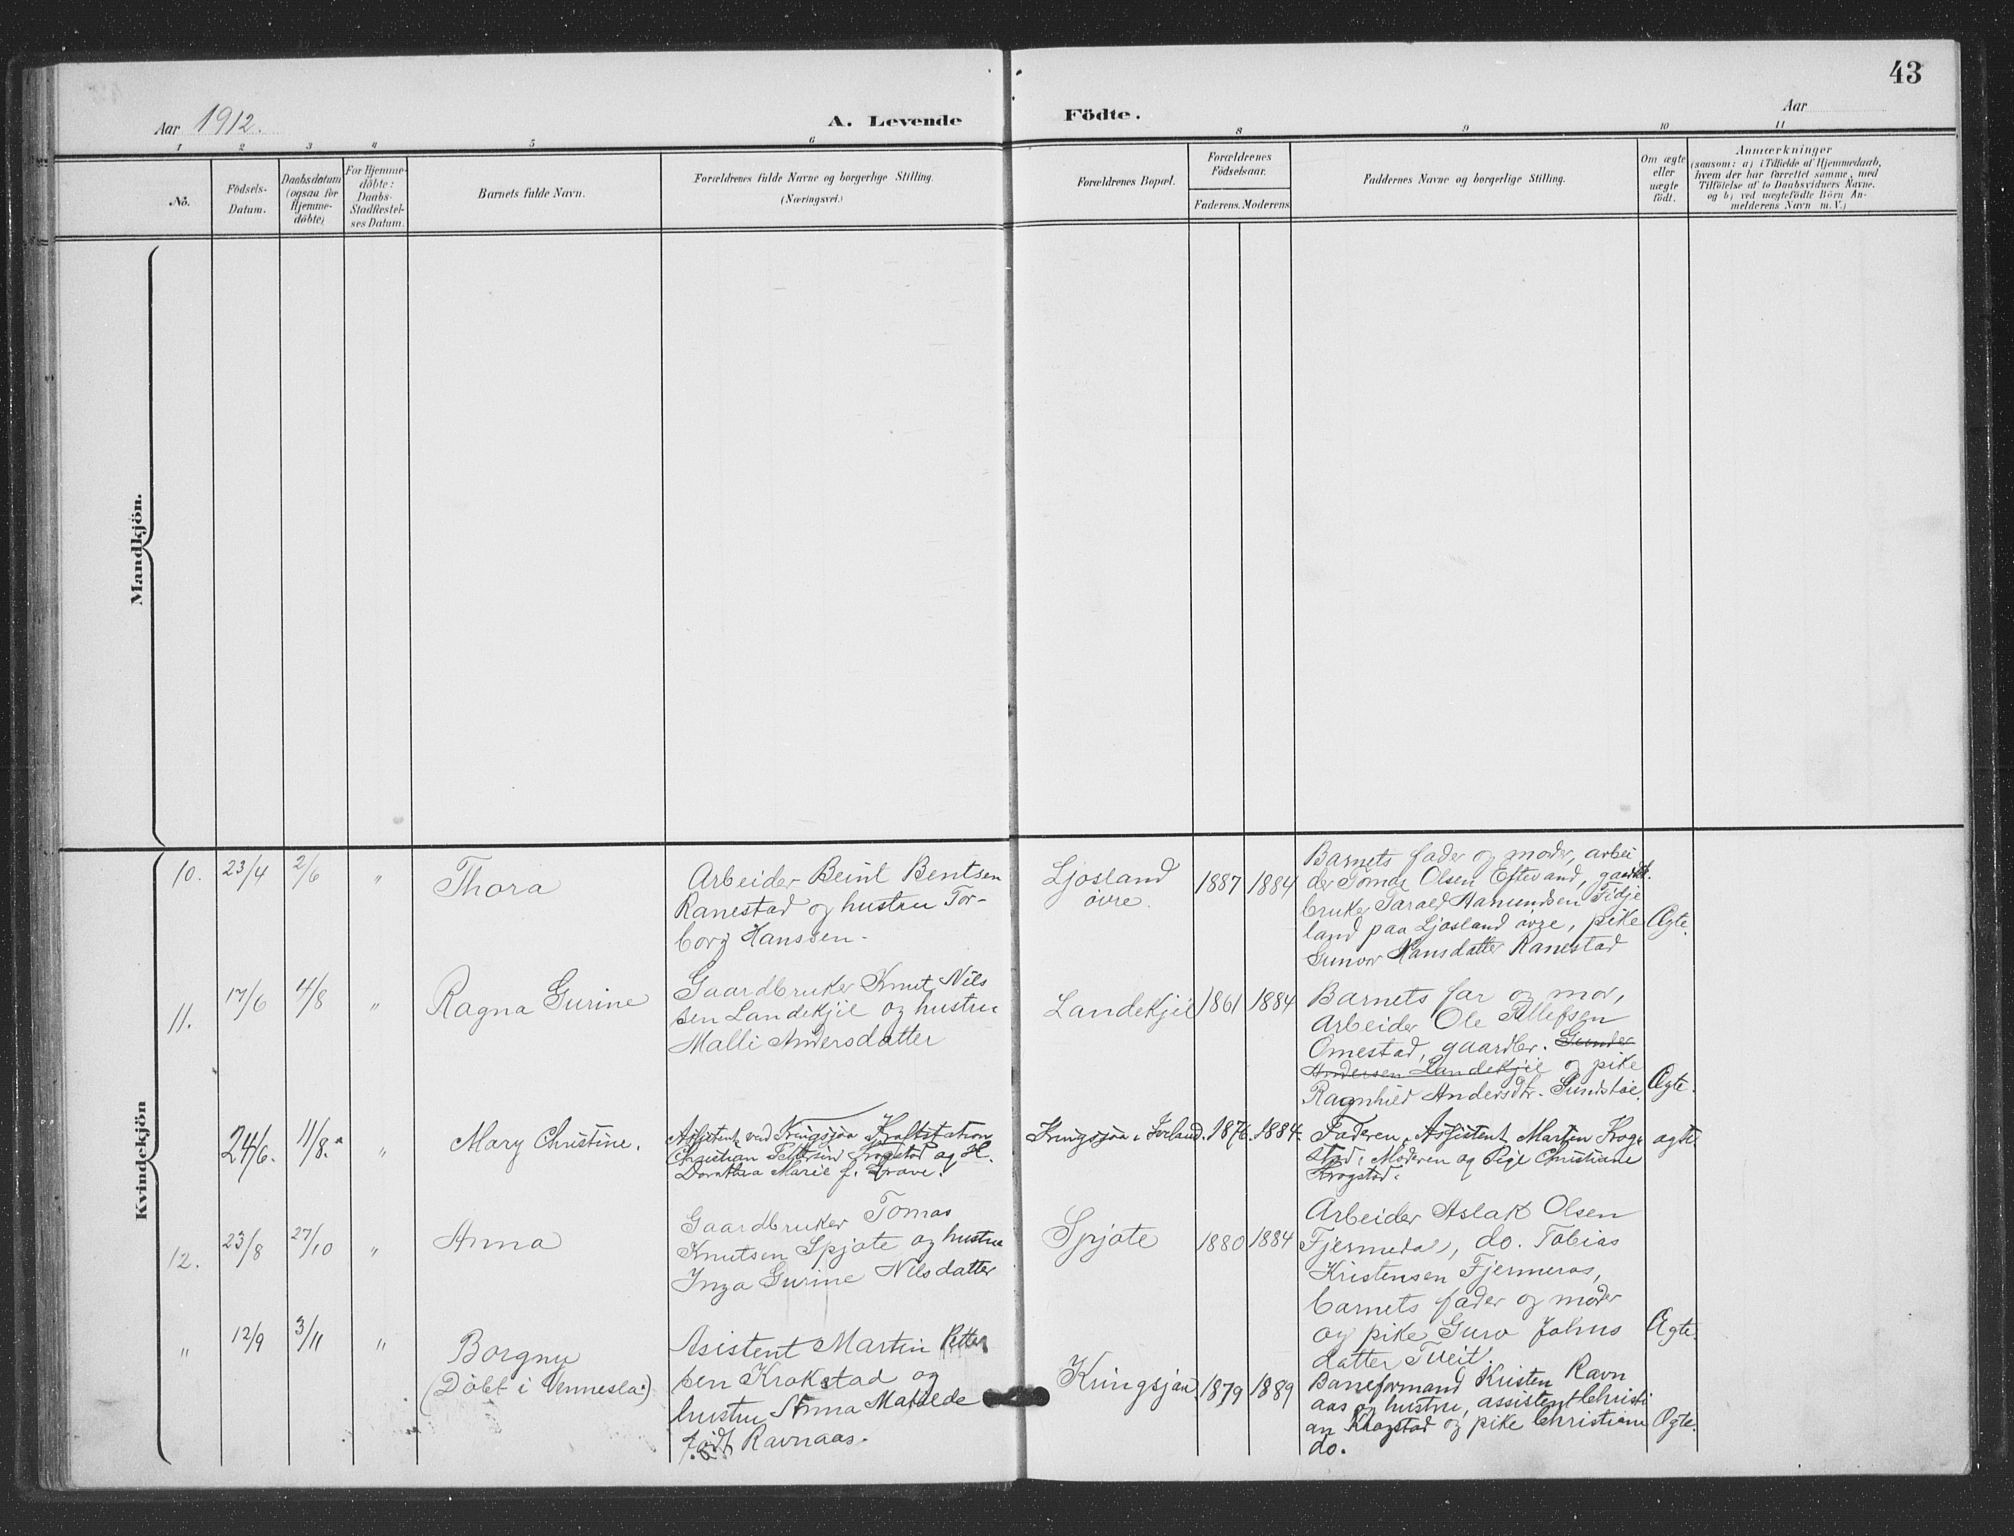 43
Aar 1912.
A. Levende
Födte.
Aar
1 2 3 4 5 6 8 9 10 11
No.
Födsels-
Datum.
Daabsdatum
(ogsaa for
Hjemme-
döbte)
For Hjemme-
döbte:
Daabs-
Stadfestel-
ses Datum.
Barnets fulde Navn.
Forældrenes fulde Navne og borgerlige Stilling.
(Næringsvei.)
Forældrenes Bopæl.
Forældrenes
Födselsaar.
Faderens. Moderens.
Faddernes Navne og borgerlige Stilling.
Om ægte
eller
uægte
födt.
Anmærkninger
(saasom: a) i Tilfælde af Hjemmedaab,
hvem der har forrettet samme, med
Tilföielse af to Daabsvidners Navne.
og b) ved uægtefödte Börn An-
melderens Navn m. V.)
Mandkjön.
Kvindekjön
10. 23/4 2/6 " Thora
Arbeider Beint Bentsen
Ranestad og hustru Tor-
borg Hanssen.
Ljosland
övre.
1887 1884
Barnets fader og moder, arbei
der Tomas Olsen Eftevand, gaard
bruker Tarald Aamundsen Fidje
land paa Ljosland övre, pike
Gunvor Hansdatter Ranestad
Ægte.
11. 17/6 4/8 " Ragna Gurine
Gaardbruker Knut Nils
sen Landekjil og hustru
Malli Andersdatter
Landekjil 1861 1884
Barnets far og mor,
Arbeider Ole Tellefsen
Omestad, gaardbr. Gunder
Andersen Landekjil og pike
Ragnhild Andersdtr. Sundstöl.
Ægte.
24/6. 11/8. " Mary Christine.
Assistent ved Kringsjaa Kraftstation
Christian Pettersen Krogstad og H.
Dorothea Marie f. Grave.
Kringsjaa i Iveland. 1876. 1884.
Faderen, Assistent Martin Krog-
stad, Moderen og Pige Christiane
Krogstad.
ægte
12. 23/8 27/10 " Anna
Gaardbruker Tomas
Knutsen Spjote og hustru
Inga Gurine Nilsdatter
Spjote 1880 1884
Arbeider Aslak Olsen
Fjermedal, do. Tobias
Kristensen Fjermeros,
barnets fader og moder
og pike Guro Johns
datter Tveit.
Ægte.
" 12/9 3/11 " Borgny
(Döbt i Vennesla.)
Asistent Martin Petter
sen Krokstad og
hustru Anna Matilde
födt Ravnaas.
Kringsjaa 1879 1889
Baneformand Kristen Ravn
aas og hustru, assistent Christi
an Krogstad og pike Christiane
do.
Ægte.